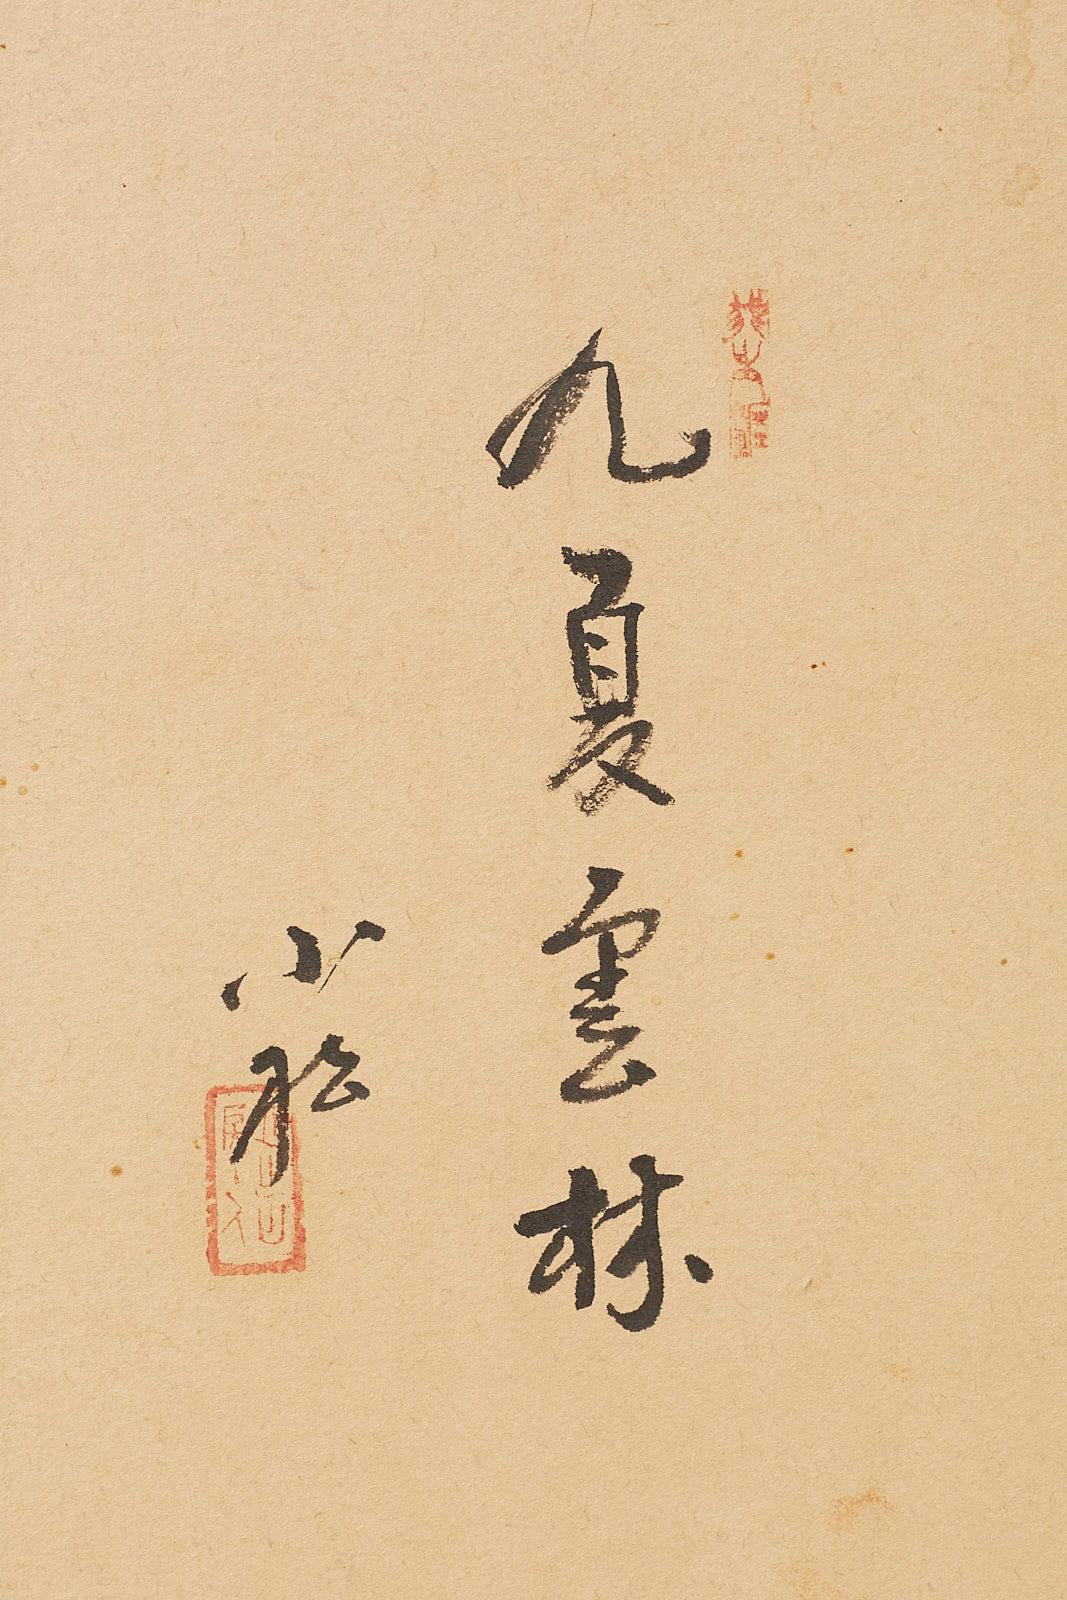 九夏雲林
小松